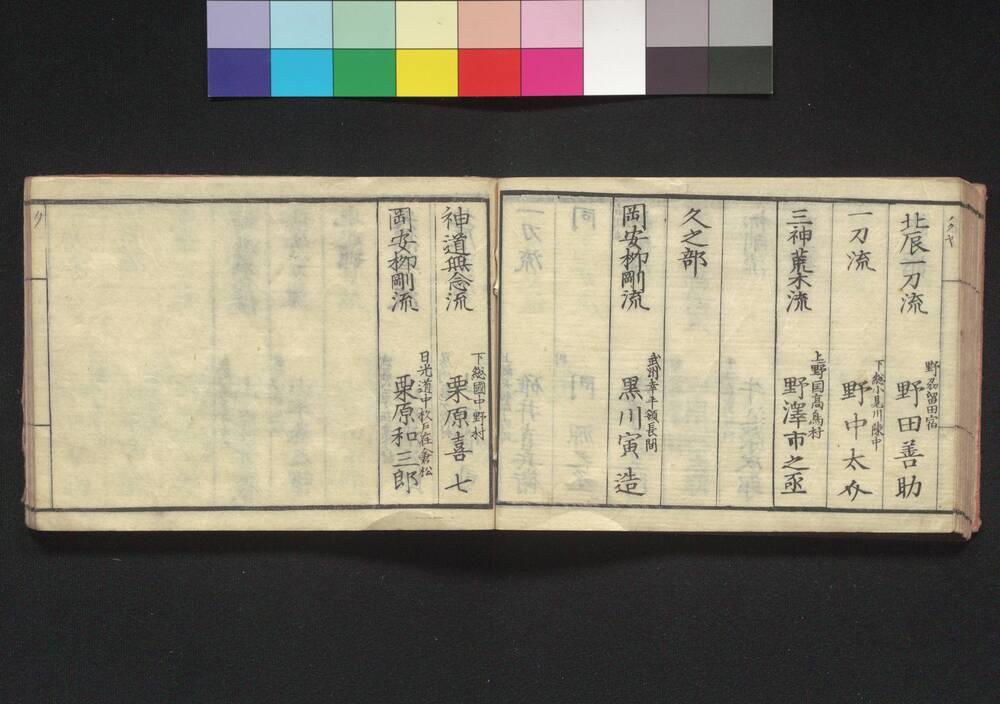 北辰一刀流
野刕留田宿
野田善助
一刀流
下総小見川陳中
野中太介
三神荒木流
上野国高鳥村
野澤市之亟
久之部
岡安柳剛流
武州幸手領長間
黒川寅造
神道無念流
下総國中野村
栗原喜七
岡安柳剛流
日光道中杦戸在倉松
栗原和三郎